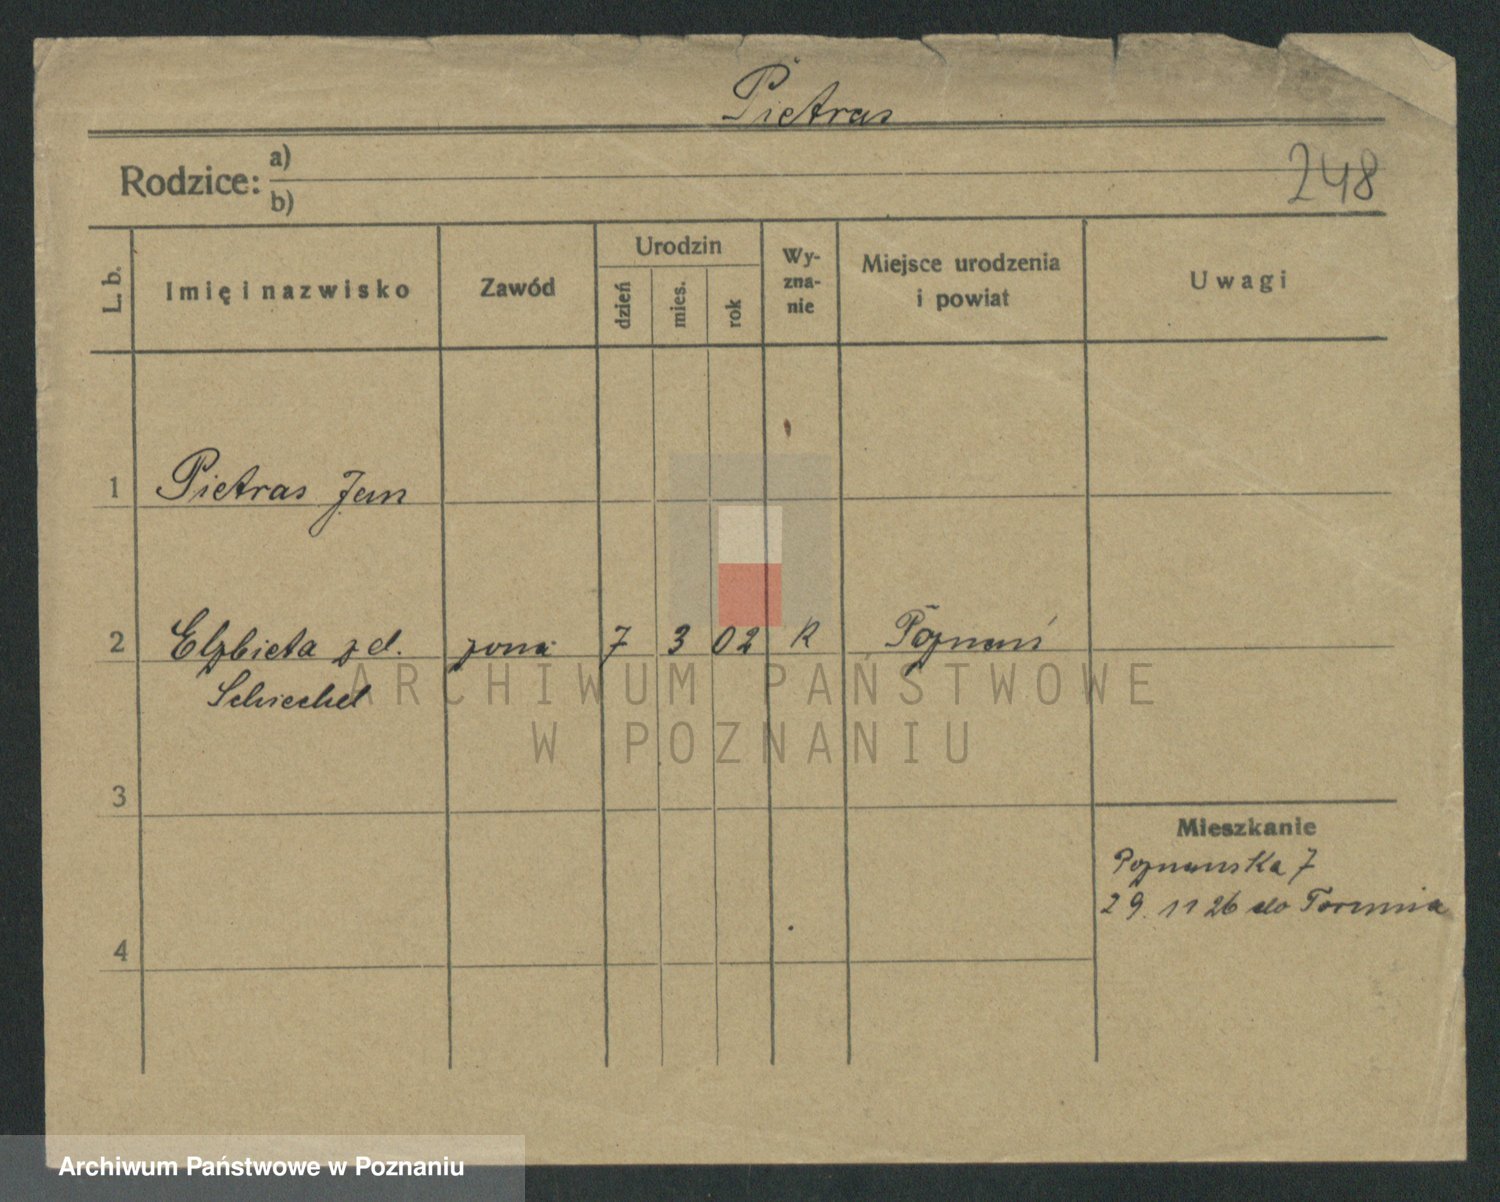 Pietras
Rodzice: a)
b)
248
L. b.
Imię i nazwisko
Zawód
Urodzin
dzień
mies.
rok
Wy-
zna-
nie
Miejsce urodzenia
i powiat
Uwagi
1 Pietras Jan
2 Elzbieta zd. zona 7 3 02 K Poznań
Schiechel
3
4
Mieszkanie
Poznanska 7
29. 11 26 do Torunia
ARCHIWUM PAŃSTWOWE
W POZNANIU
Archiwum Państwowe w Poznaniu